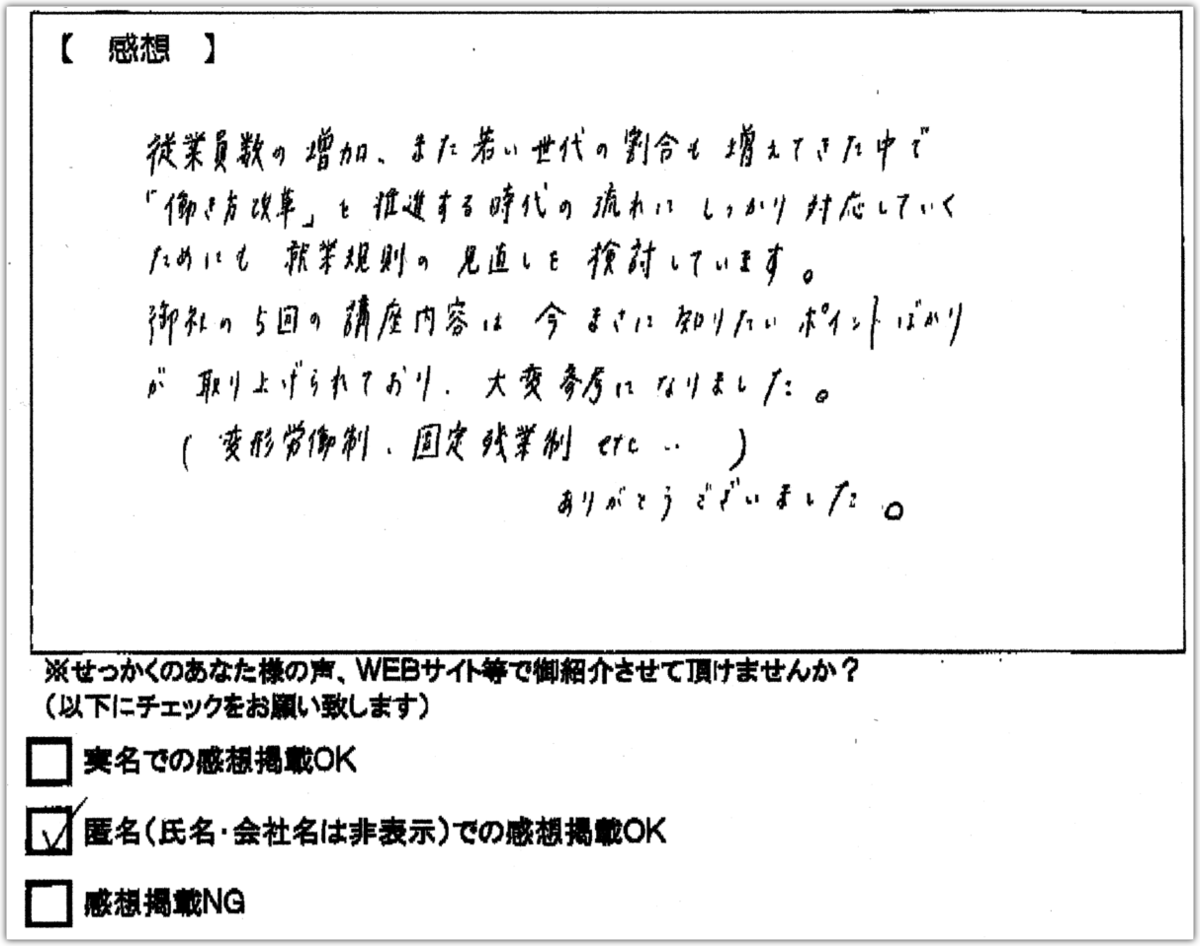 【 感想 】
従業員数の増加、また若い世代の割合も増えてきた中で
「働き方改革」を推進する時代の流れにしっかり対応していく
ためにも就業規則の見直しを検討しています。
御社の5回の講座内容は今まさに知りたいポイントばかり
が取り上げられており、大変参考になりました。
(変形労働制、固定残業制 etc‥)
ありがとうございました。
※せっかくのあなた様の声、WEBサイト等で御紹介させて頂けませんか？
（以下にチェックをお願い致します）
□ 実名での感想掲載OK
☑ 匿名（氏名・会社名は非表示）での感想掲載OK
□ 感想掲載NG